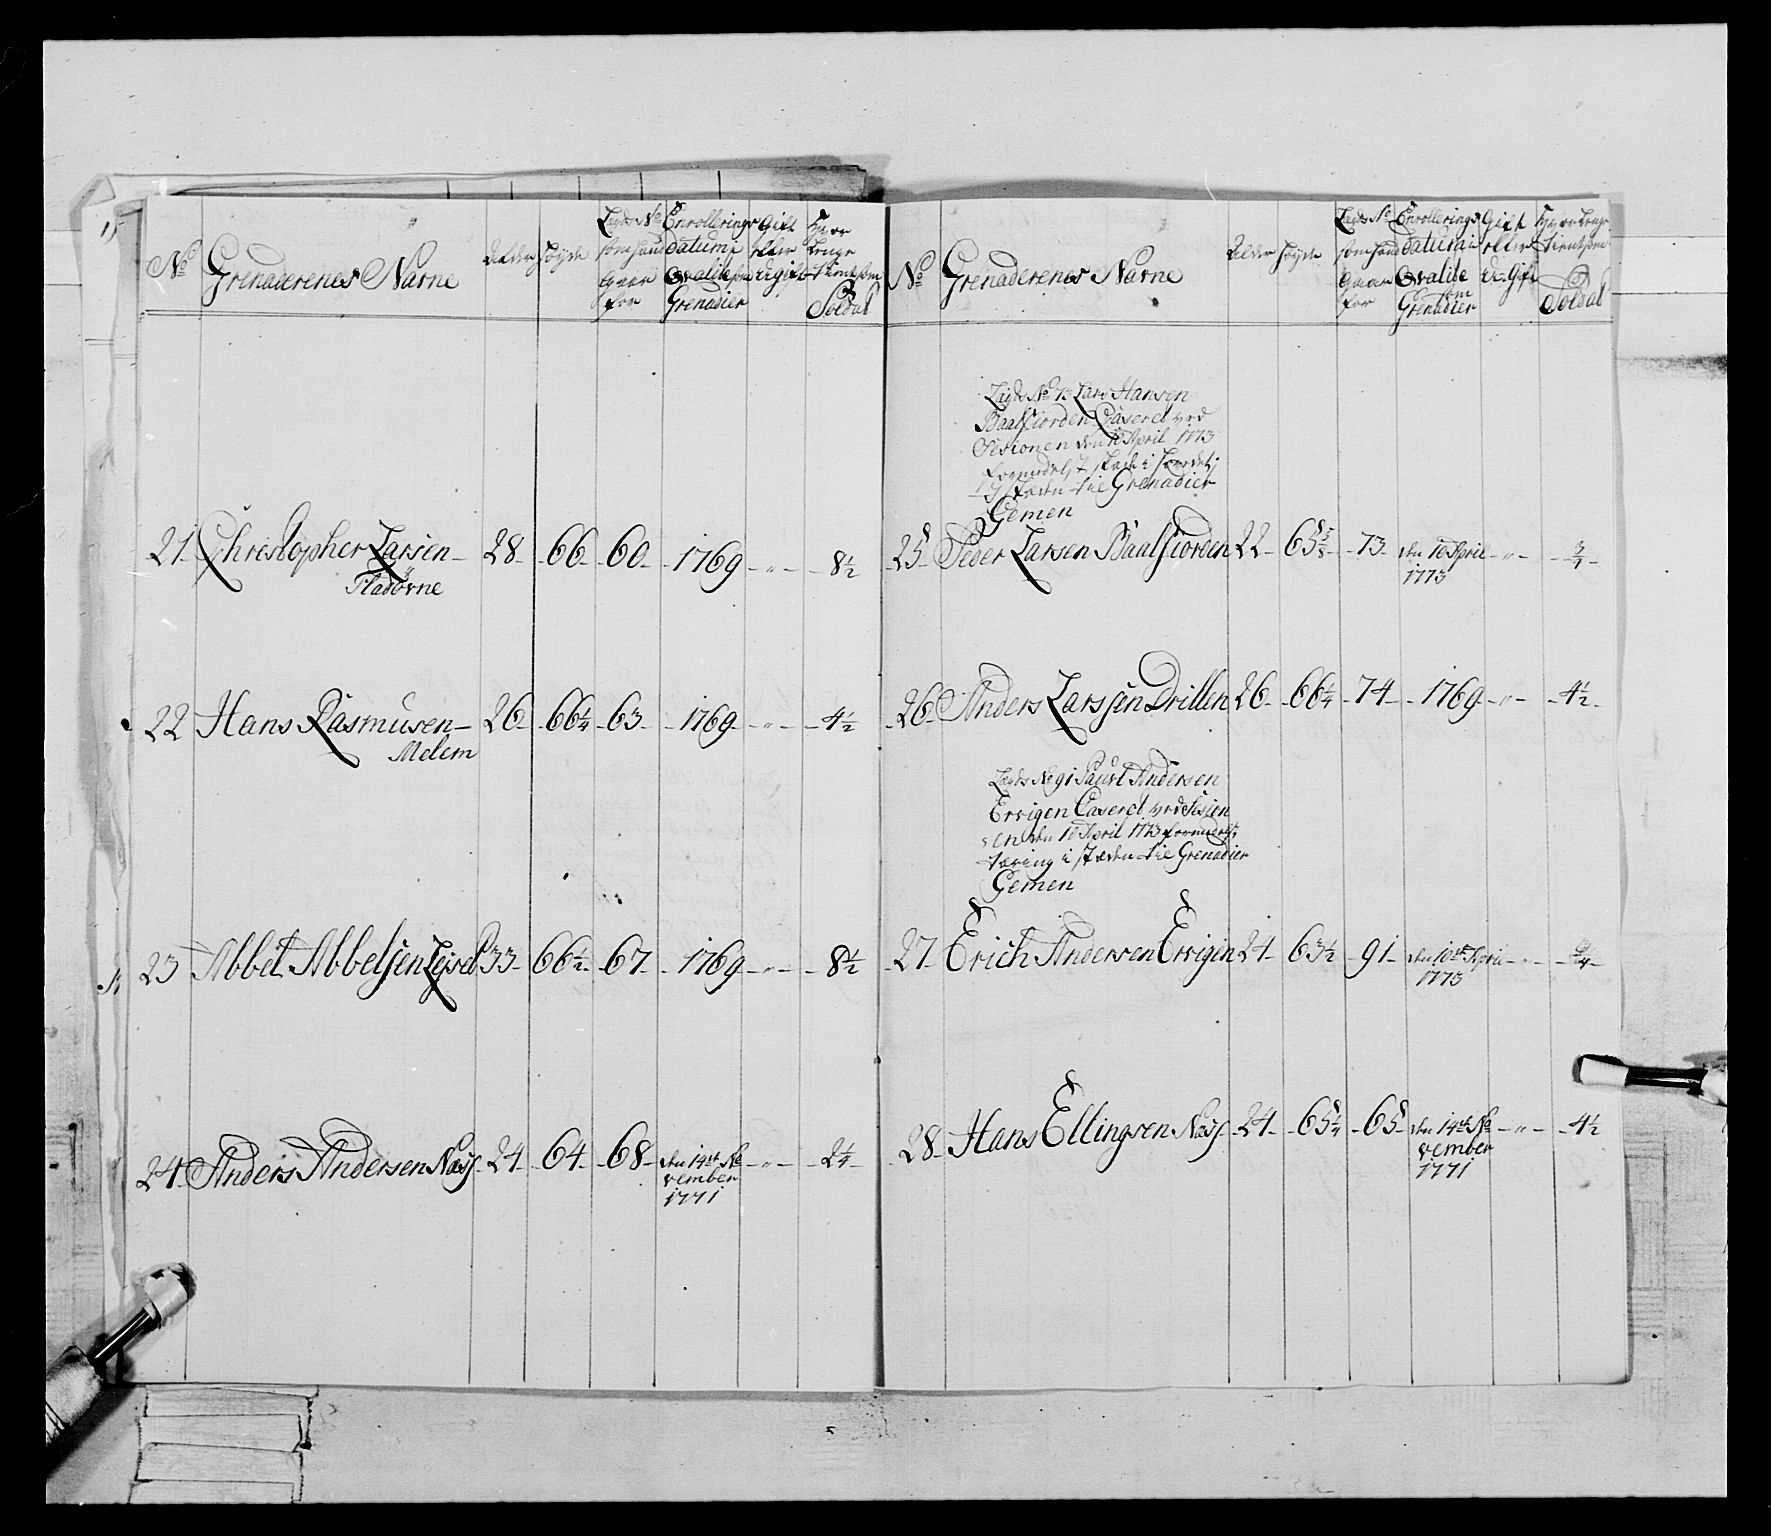 No Grenaderenes Navne Alder Høyde Legds No som hand staar for Enrollerings datum i Qvalite som Grenadier Gift eller Ugift Hvor lenge tient som Soldat
21. Christopher Larsen 28. 66. 60. 1769 - " - 8 1/2
Fladørne
22 Hans Rasmusen 26. 66 1/4 63. 1769. - " - 4 1/2
Melem
23 Abbel Abbelsen Lejsed 33. 66 1/2. 67. 1769. - " - 8 1/2
24. Anders Andersen Næss 24. 64. 68. den 14de No - " - 2 1/4
vember
1771
No Grenaderenes Navne Alder Høyde Legds No som hand staar for Enrollerings datum i Qvalite som Grenadier Gift eller U-Gift Hvor lenge tient som Soldat
Legds No 73 Lars Hansen
Baalsiorden Caseret ved
Sesionen den 10 April 1773
formedelst skade i hovedet;
i steden til Grenadier
Gemen
25. Peder Larsen Baalsiorden 22. 65 5/8. 73. den 10 April - " - 3/4
1773
26. Anders Larssen Drillen 26. 66 1/4 74. 1769. - " - 4 1/2.
Legds No 91 Paul Andersen
Ervigen Caseret ved Sesion
en den 10 April 1773 formedelst
tæring i steden til Grenadier
Gemen
27. Erich Andersen Ervigen 24. 63 1/2 91. den 10de April - " - 3/4
1773
28. Hans Ellingsen Næss 24. 65 1/4. 65. den 14de No - " - 4 1/2
vember
1771